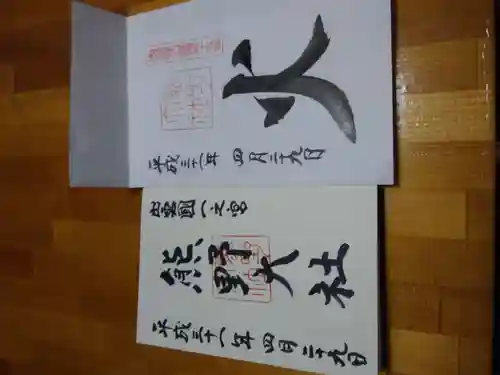 火
平成三十一年 四月二十九日
出雲國一之宮
熊野大社
平成三十一年四月二十九日